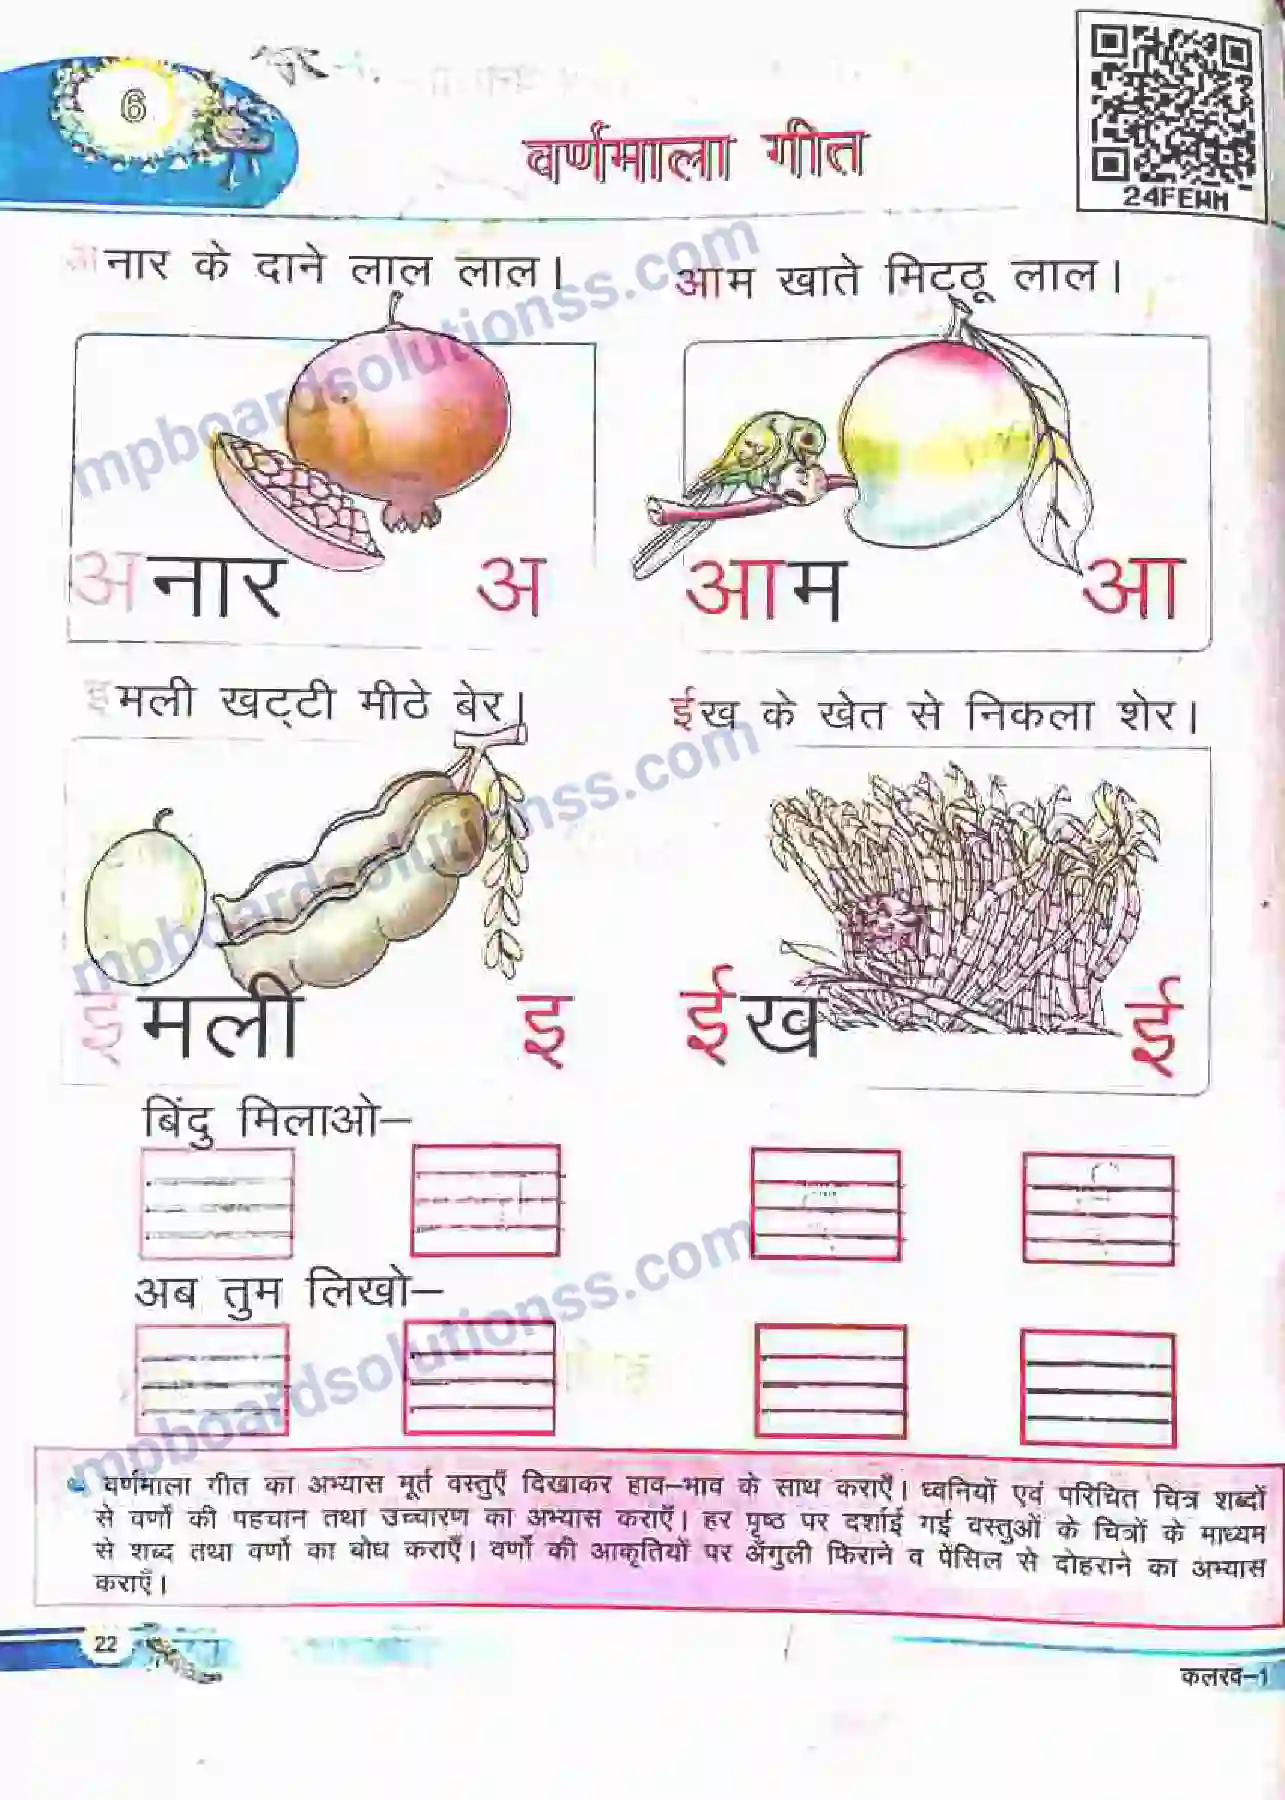 6
वर्णमाला गीत
24FEWM
अनार के दाने लाल लाल।
आम खाते मिट्ठू लाल।
अनार अ
आम आ
इमली खट्टी मीठे बेर।
ईख के खेत से निकला शेर।
इमली इ
ईख ई
बिंदु मिलाओ–
अब तुम लिखो–
वर्णमाला गीत का अभ्यास मूर्त वस्तुएँ दिखाकर हाव–भाव के साथ कराएँ। ध्वनियों एवं परिचित चित्र शब्दों
से वर्णों की पहचान तथा उच्चारण का अभ्यास कराएँ। हर पृष्ठ पर दर्शाई गई वस्तुओं के चित्रों के माध्यम
से शब्द तथा वर्णों का बोध कराएँ। वर्णों की आकृतियों पर अँगुली फिराने व पेंसिल से दोहराने का अभ्यास
कराएँ।
22
कलरव–1
mpboardsolutionss.com
mpboardsolutionss.com
mpboardsolutionss.com